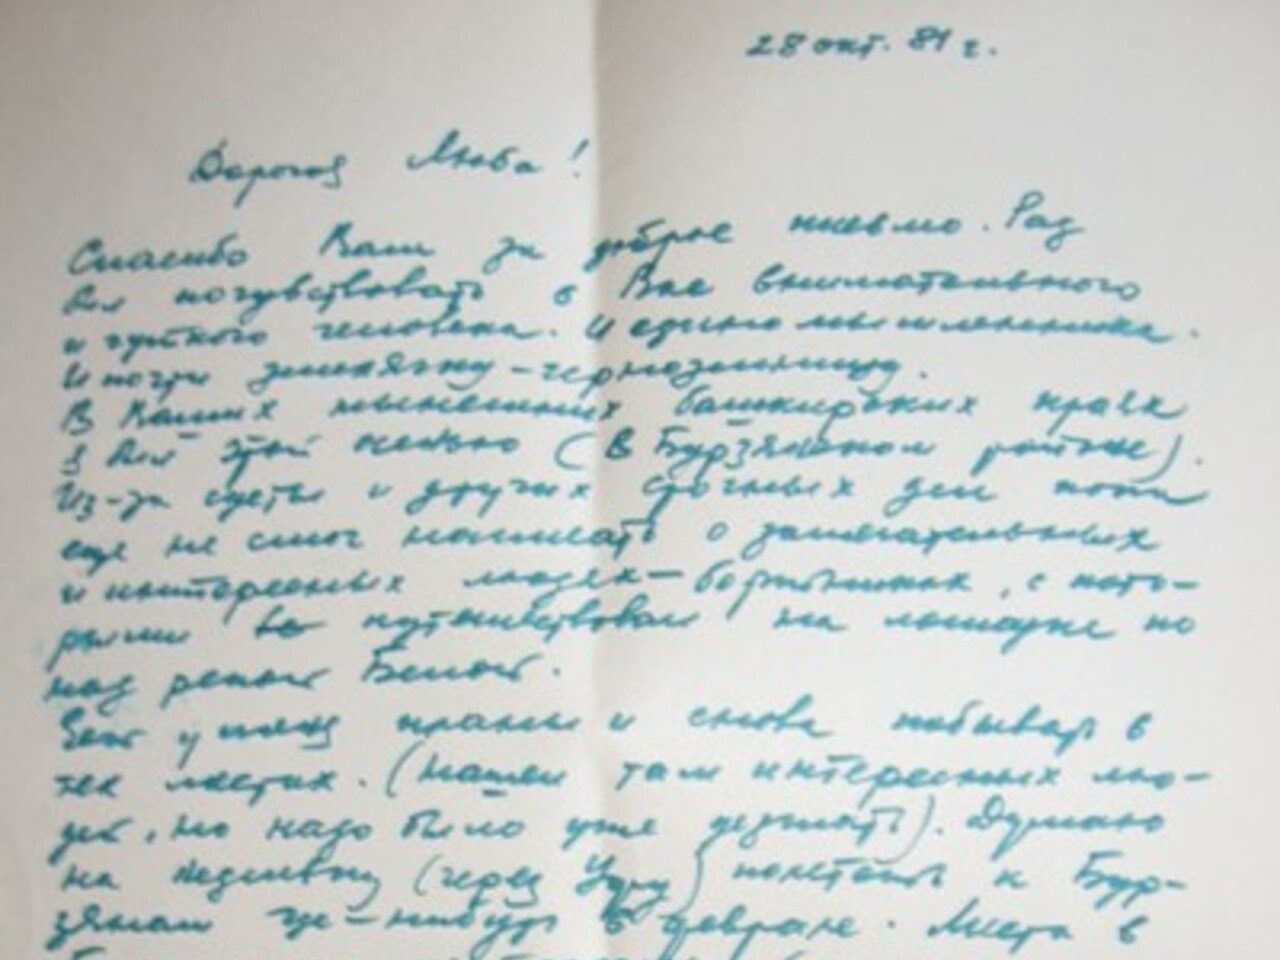 28 окт. 81 г.
Дорогая Люба!
Спасибо Вам за доброе письмо. Рад
был почувствовать в Вас внимательного
и чуткого человека. И единомышленника.
И почти землячку-черноземницу.
В Ваших нынешних башкирских краях
я был этой осенью (В Бурзянском районе).
Из-за суеты и других срочных дел пока
еще не смог написать о замечательных
и интересных людях - бортниках, с кото-
рыми путешествовал на лошадке по
над рекой Белой.
Есть у меня планы и снова побывать в
тех местах. (Нашел там интересных лю-
дей, но надо было уже уезжать). Думаю
на недельку (через Уфу) полететь к Бур-
зянам где-нибудь в феврале. Места в